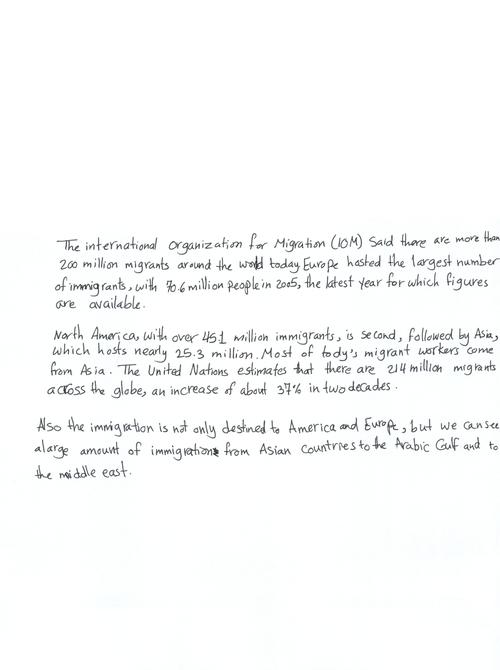 The international Organization for Migration (IOM) Said there are more than
200 million migrants around the world today. Europe hasted the largest number
of immigrants, with 70.6 million people in 2005, the latest year for which figures
are available.
North America, with over 45.1 million immigrants, is second, followed by Asia,
which hosts nearly 25.3 million. Most of tody's migrant workers come
from Asia. The United Nations estimates that there are 214 million migrants
across the globe, an increase of about 37% in two decades.
Also the immigration is not only destined to America and Europe, but we can see
a large amount of immigrations from Asian Countries to the Arabic Gulf and to
the middle east.